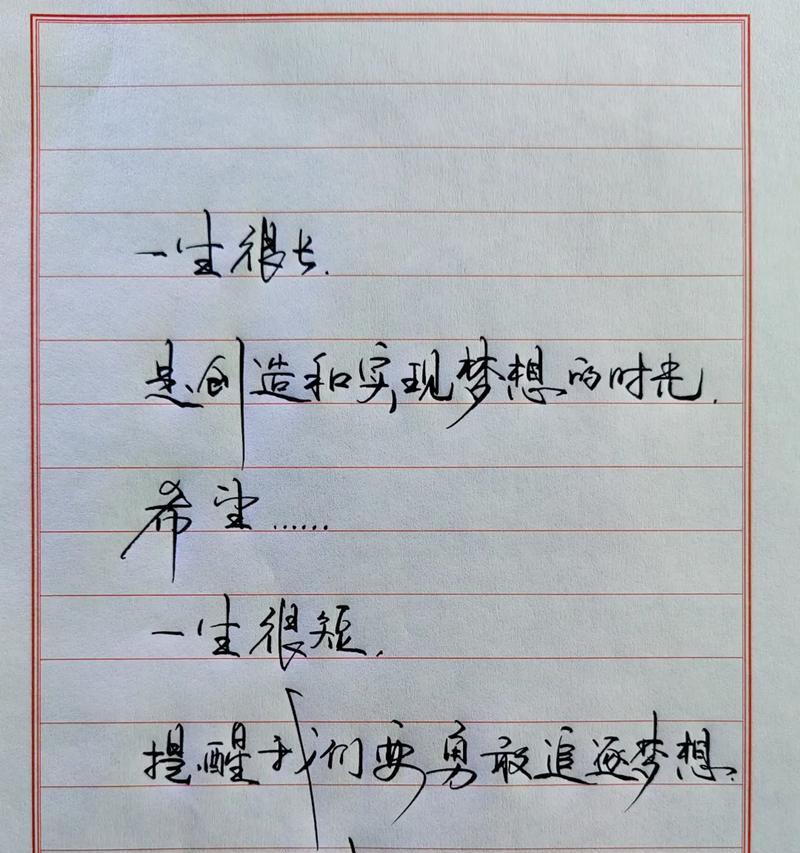 一生很长.
是创造和实现梦想的时光.
希望……
一生很短.
提醒我们要勇敢追逐梦想.